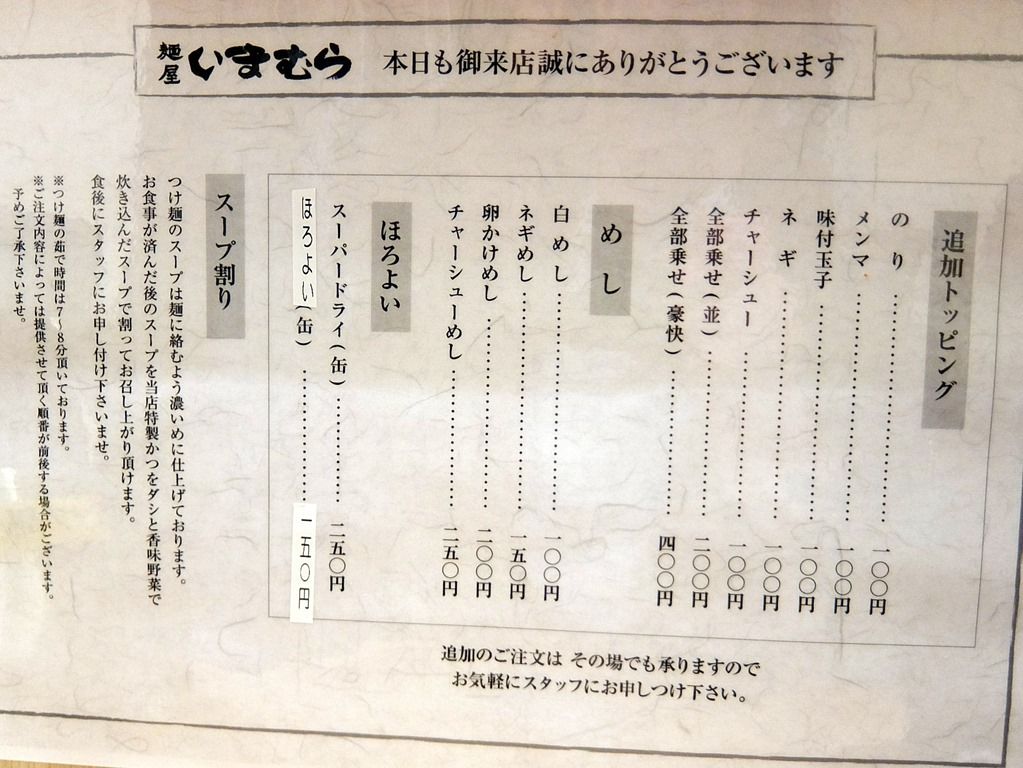 麺屋 いまむら 本日も御来店誠にありがとうございます
追加トッピング
のり ………… 一〇〇円
メンマ ………… 一〇〇円
味付玉子 ………… 一〇〇円
ネギ ………… 一〇〇円
チャーシュー ………… 一〇〇円
全部乗せ(並) ………… 二〇〇円
全部乗せ(豪快) ………… 四〇〇円
めし
白めし ………… 一〇〇円
ネギめし ………… 一五〇円
卵かけめし ………… 二〇〇円
チャーシューめし ………… 二五〇円
ほろよい
スーパードライ(缶) ………… 二五〇円
ほろよい(缶) ………… 一五〇円
追加のご注文は その場でも承りますので
お気軽にスタッフにお申しつけ下さい。
スープ割り
つけ麺のスープは麺に絡むよう濃いめに仕上げております。
お食事が済んだ後のスープを当店特製かつをダシと香味野菜で
炊き込んだスープで割ってお召し上がり頂けます。
食後にスタッフにお申し付け下さいませ。
※つけ麺の茹で時間は7〜8分頂いております。
※ご注文内容によっては提供させて頂く順番が前後する場合がございます。
予めご了承下さいませ。